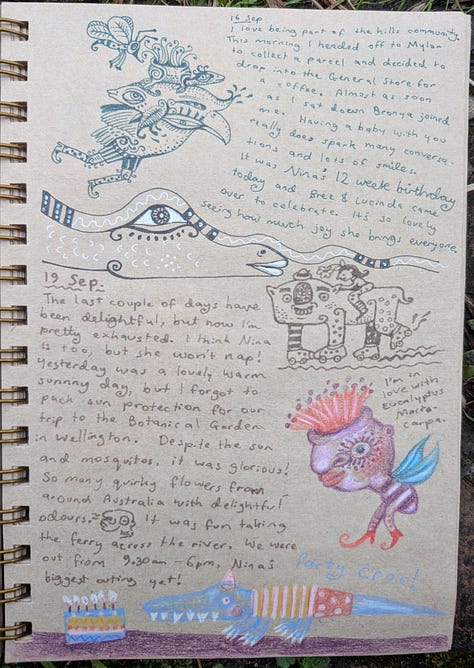 16 Sep
I love being part of the hills community.
This morning I headed off to Mylor
to collect a parcel and decided to
drop into the General Store for
a coffee. Almost as soon
as I sat down Bronya joined
me. Having a baby with you
really does spark many conversa-
tions and lots of smiles.
It was Nina's 12 week birthday
today and Bree & Lucinda came
over to celebrate. It's so lovely
seeing how much joy she brings everyone.
19 Sep.
The last couple of days have
been delightful, but now I'm
pretty exhausted. I think Nina
is too, but she won't nap!
Yesterday was a lovely warm
sunnny day, but I forgot to
pack sun protection for our
trip to the Botanical Garden
in Wellington. Despite the sun
and mosquitos, it was glorious!
So many quirky flowers from
around Australia with delightful
odours. It was fun taking
the ferry across the river. We were
out from 9.30am - 6pm, Nina's
biggest outing yet!
I'm in
love with
Eucalyptus
Macro-
carpa.
Party Croc!